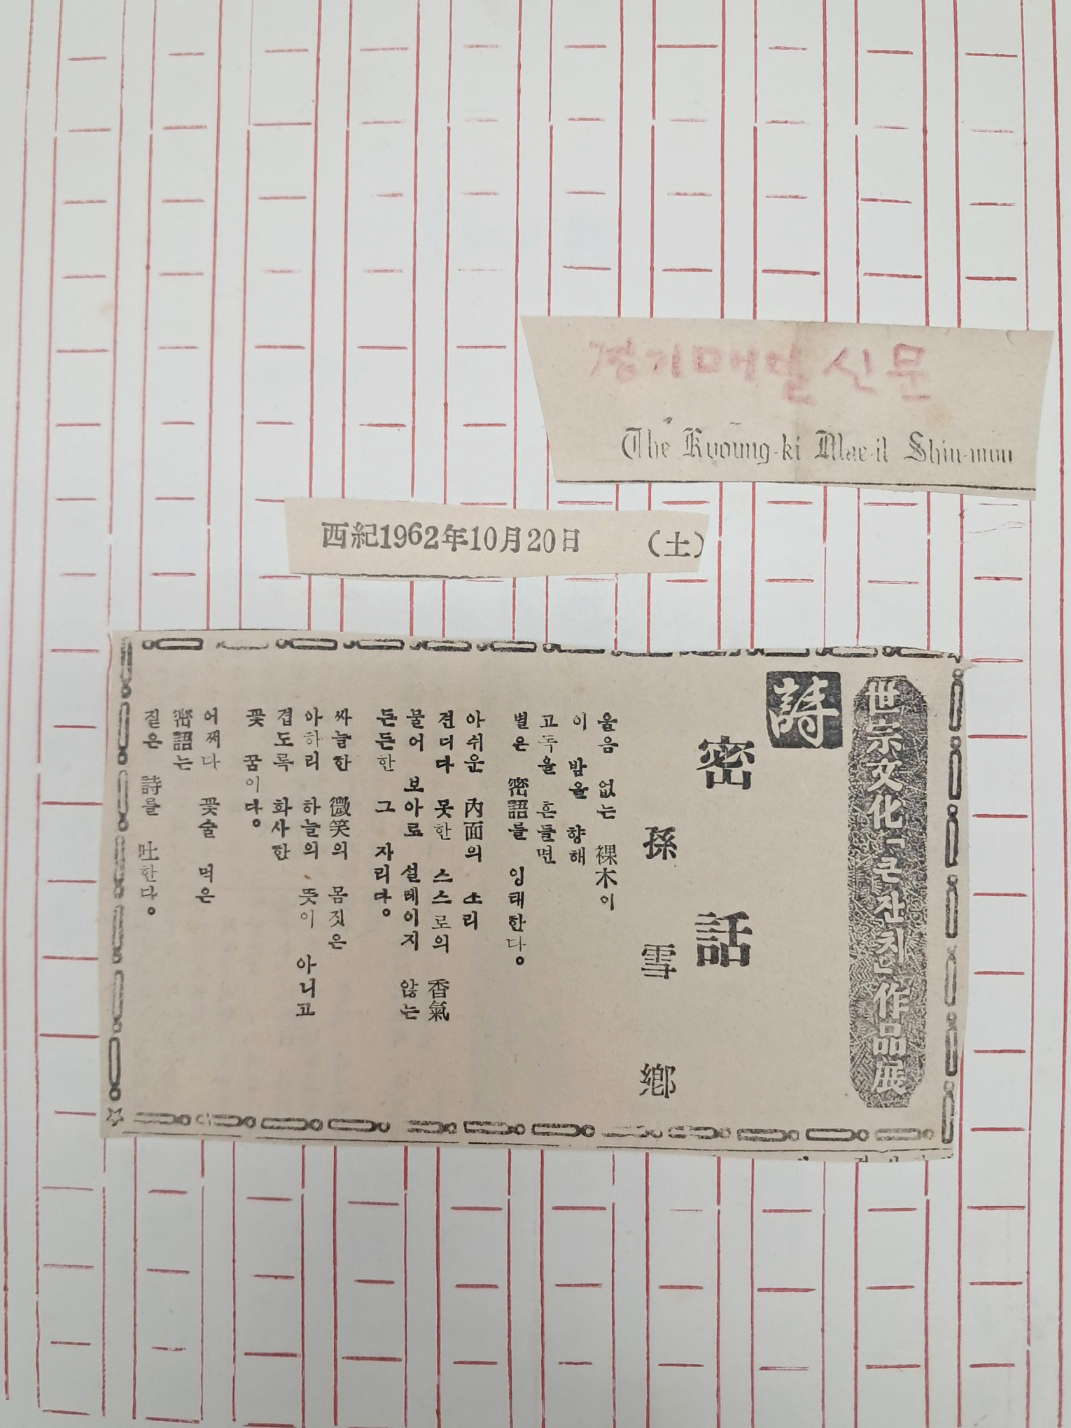 경기매일신문
The Kyoung-ki Mae-il Shin-mun
西紀1962年10月20日 (土)
世宗文化「큰잔치」作品展
詩
密話
孫雪鄕
울음 없는 裸木이
이 밤을 향해
고독을 흔들면
별은 密語를 잉태한다。
아쉬운 內面의 소리
견디다 못한 스스로의 香氣
물어 보아로 설레이지 않는
든든한 그 자리다。
싸늘한 微笑의 몸짓은
아하리 하늘의 뜻이 아니고
겁도록 화사한
꽃 꿈이다。
어찌다 꽃술 먹은
密語는
짙은 詩를 吐한다。